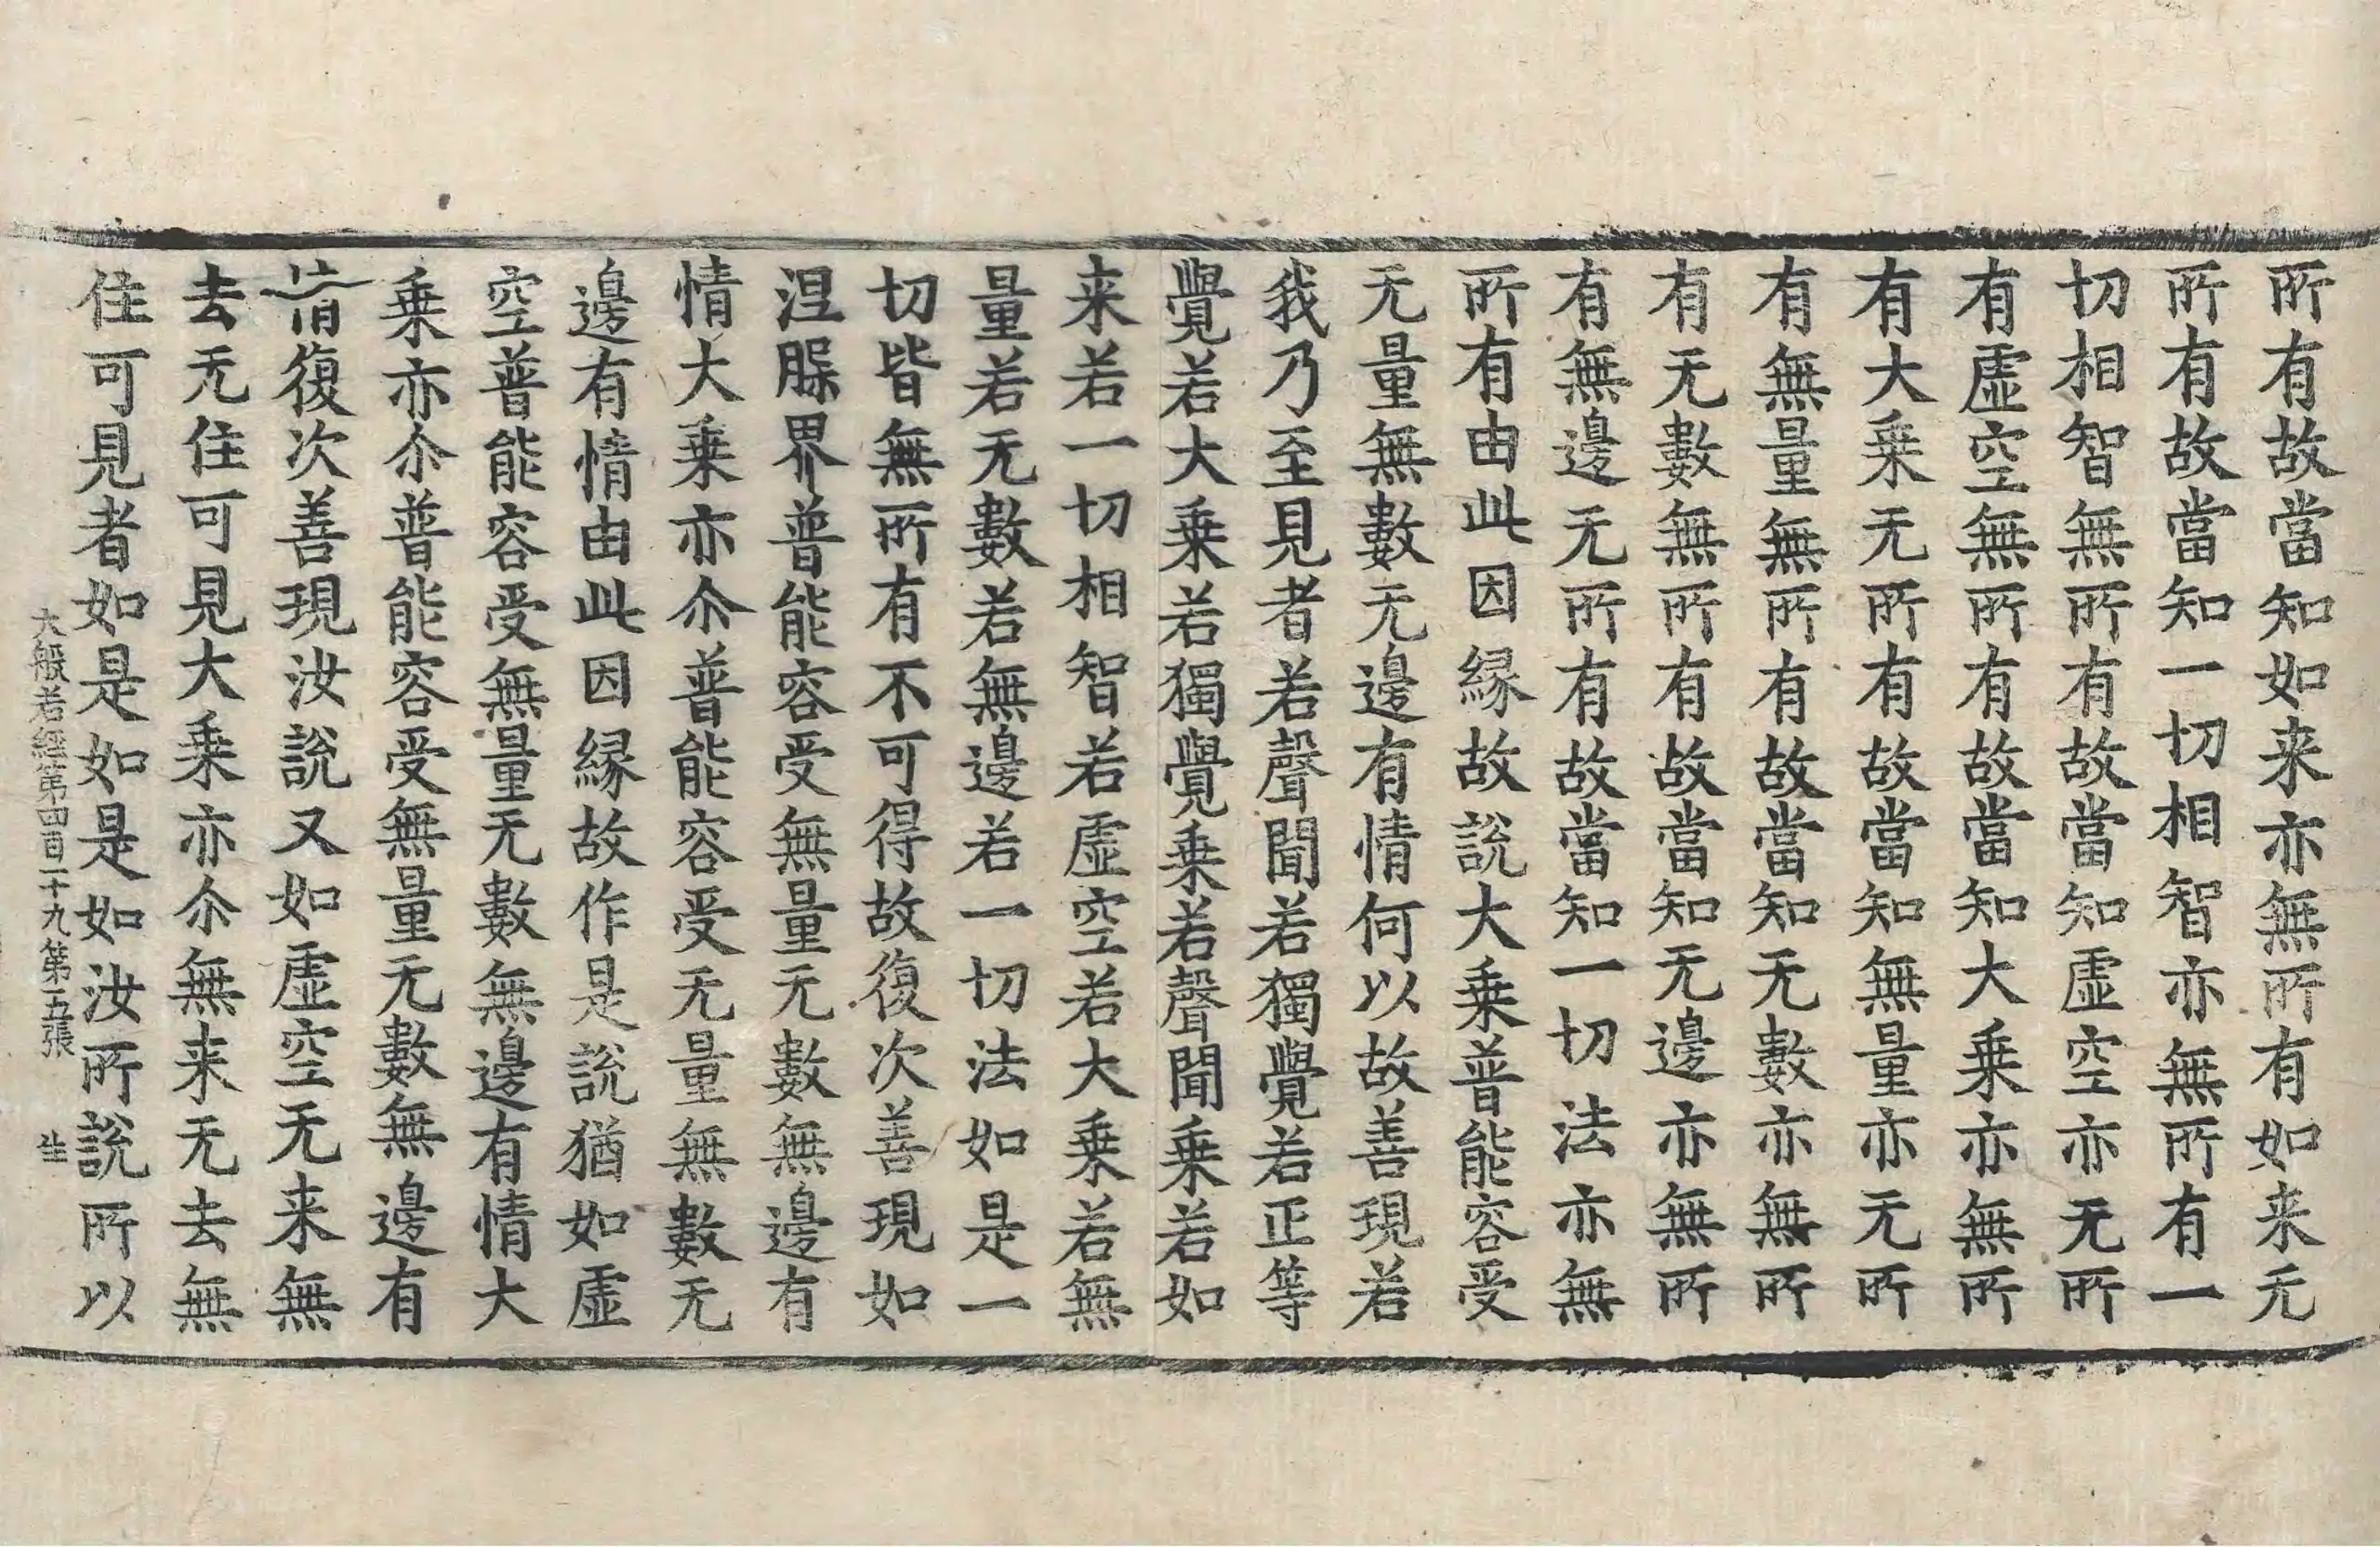 所有故當知如来亦無所有如来无
所有故當知一切相智亦無所有一
切相智無所有故當知虛空亦无所
有虛空無所有故當知大乗亦無所
有大乗无所有故當知無量亦无所
有無量無所有故當知无數亦無所
有无數無所有故當知无邊亦無所
有無邊无所有故當知一切法亦無
所有由此因縁故說大乗普能容受
无量無數无邊有情何以故善現若
我乃至見者若聲聞若獨覺若正等
覺若大乗若獨覺乗若聲聞乗若如
来若一切相智若虛空若大乗若無
量若无數若無邊若一切法如是一
切皆無所有不可得故復次善現如
涅槃界普能容受無量无數無邊有
情大乗亦尒普能容受无量無數无
邊有情由此因縁故作是說猶如虛
空普能容受無量无數無邊有情大
乗亦尒普能容受無量无數無邊有
情復次善現汝說又如虛空无来無
去无住可見大乗亦尒無来无去無
住可見者如是如是如汝所說所以
大般若經第四百一十九第五張